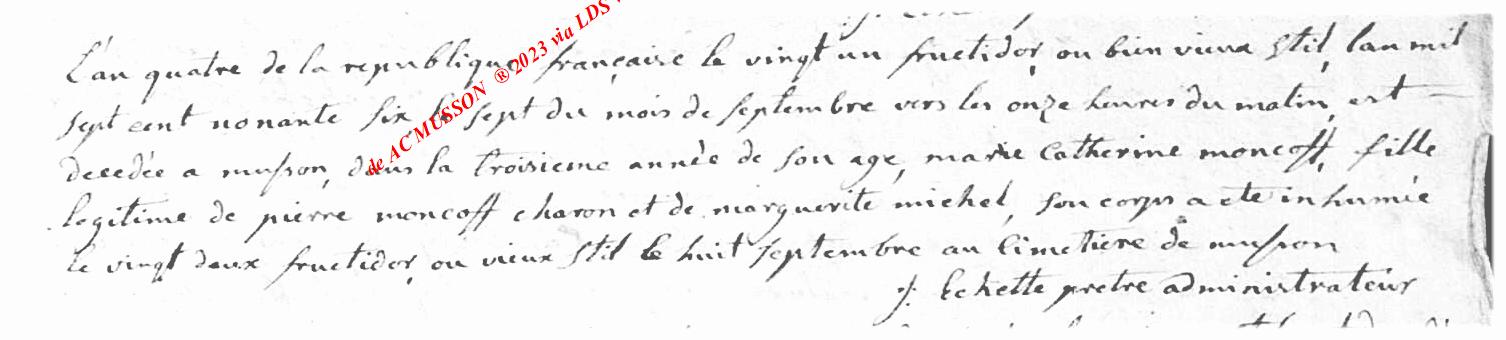 L'an quatre de la republique française le vingt un fructidor, ou bien vieux stil, l'an mil
sept cent nonante six le sept du mois de septembre vers les onze heures du matin, est
decedée a musson, dans la troisieme année de son age, marie Catherine moncoff, fille
legitime de pierre moncoff charon et de marguerite michel, son corps a ete inhumée
le vingt deux fructidor, ou vieux stil le huit septembre au Cimetiere de musson
j: Echette pretre administrateur
de ACMUSSON ® 2023 via LDS